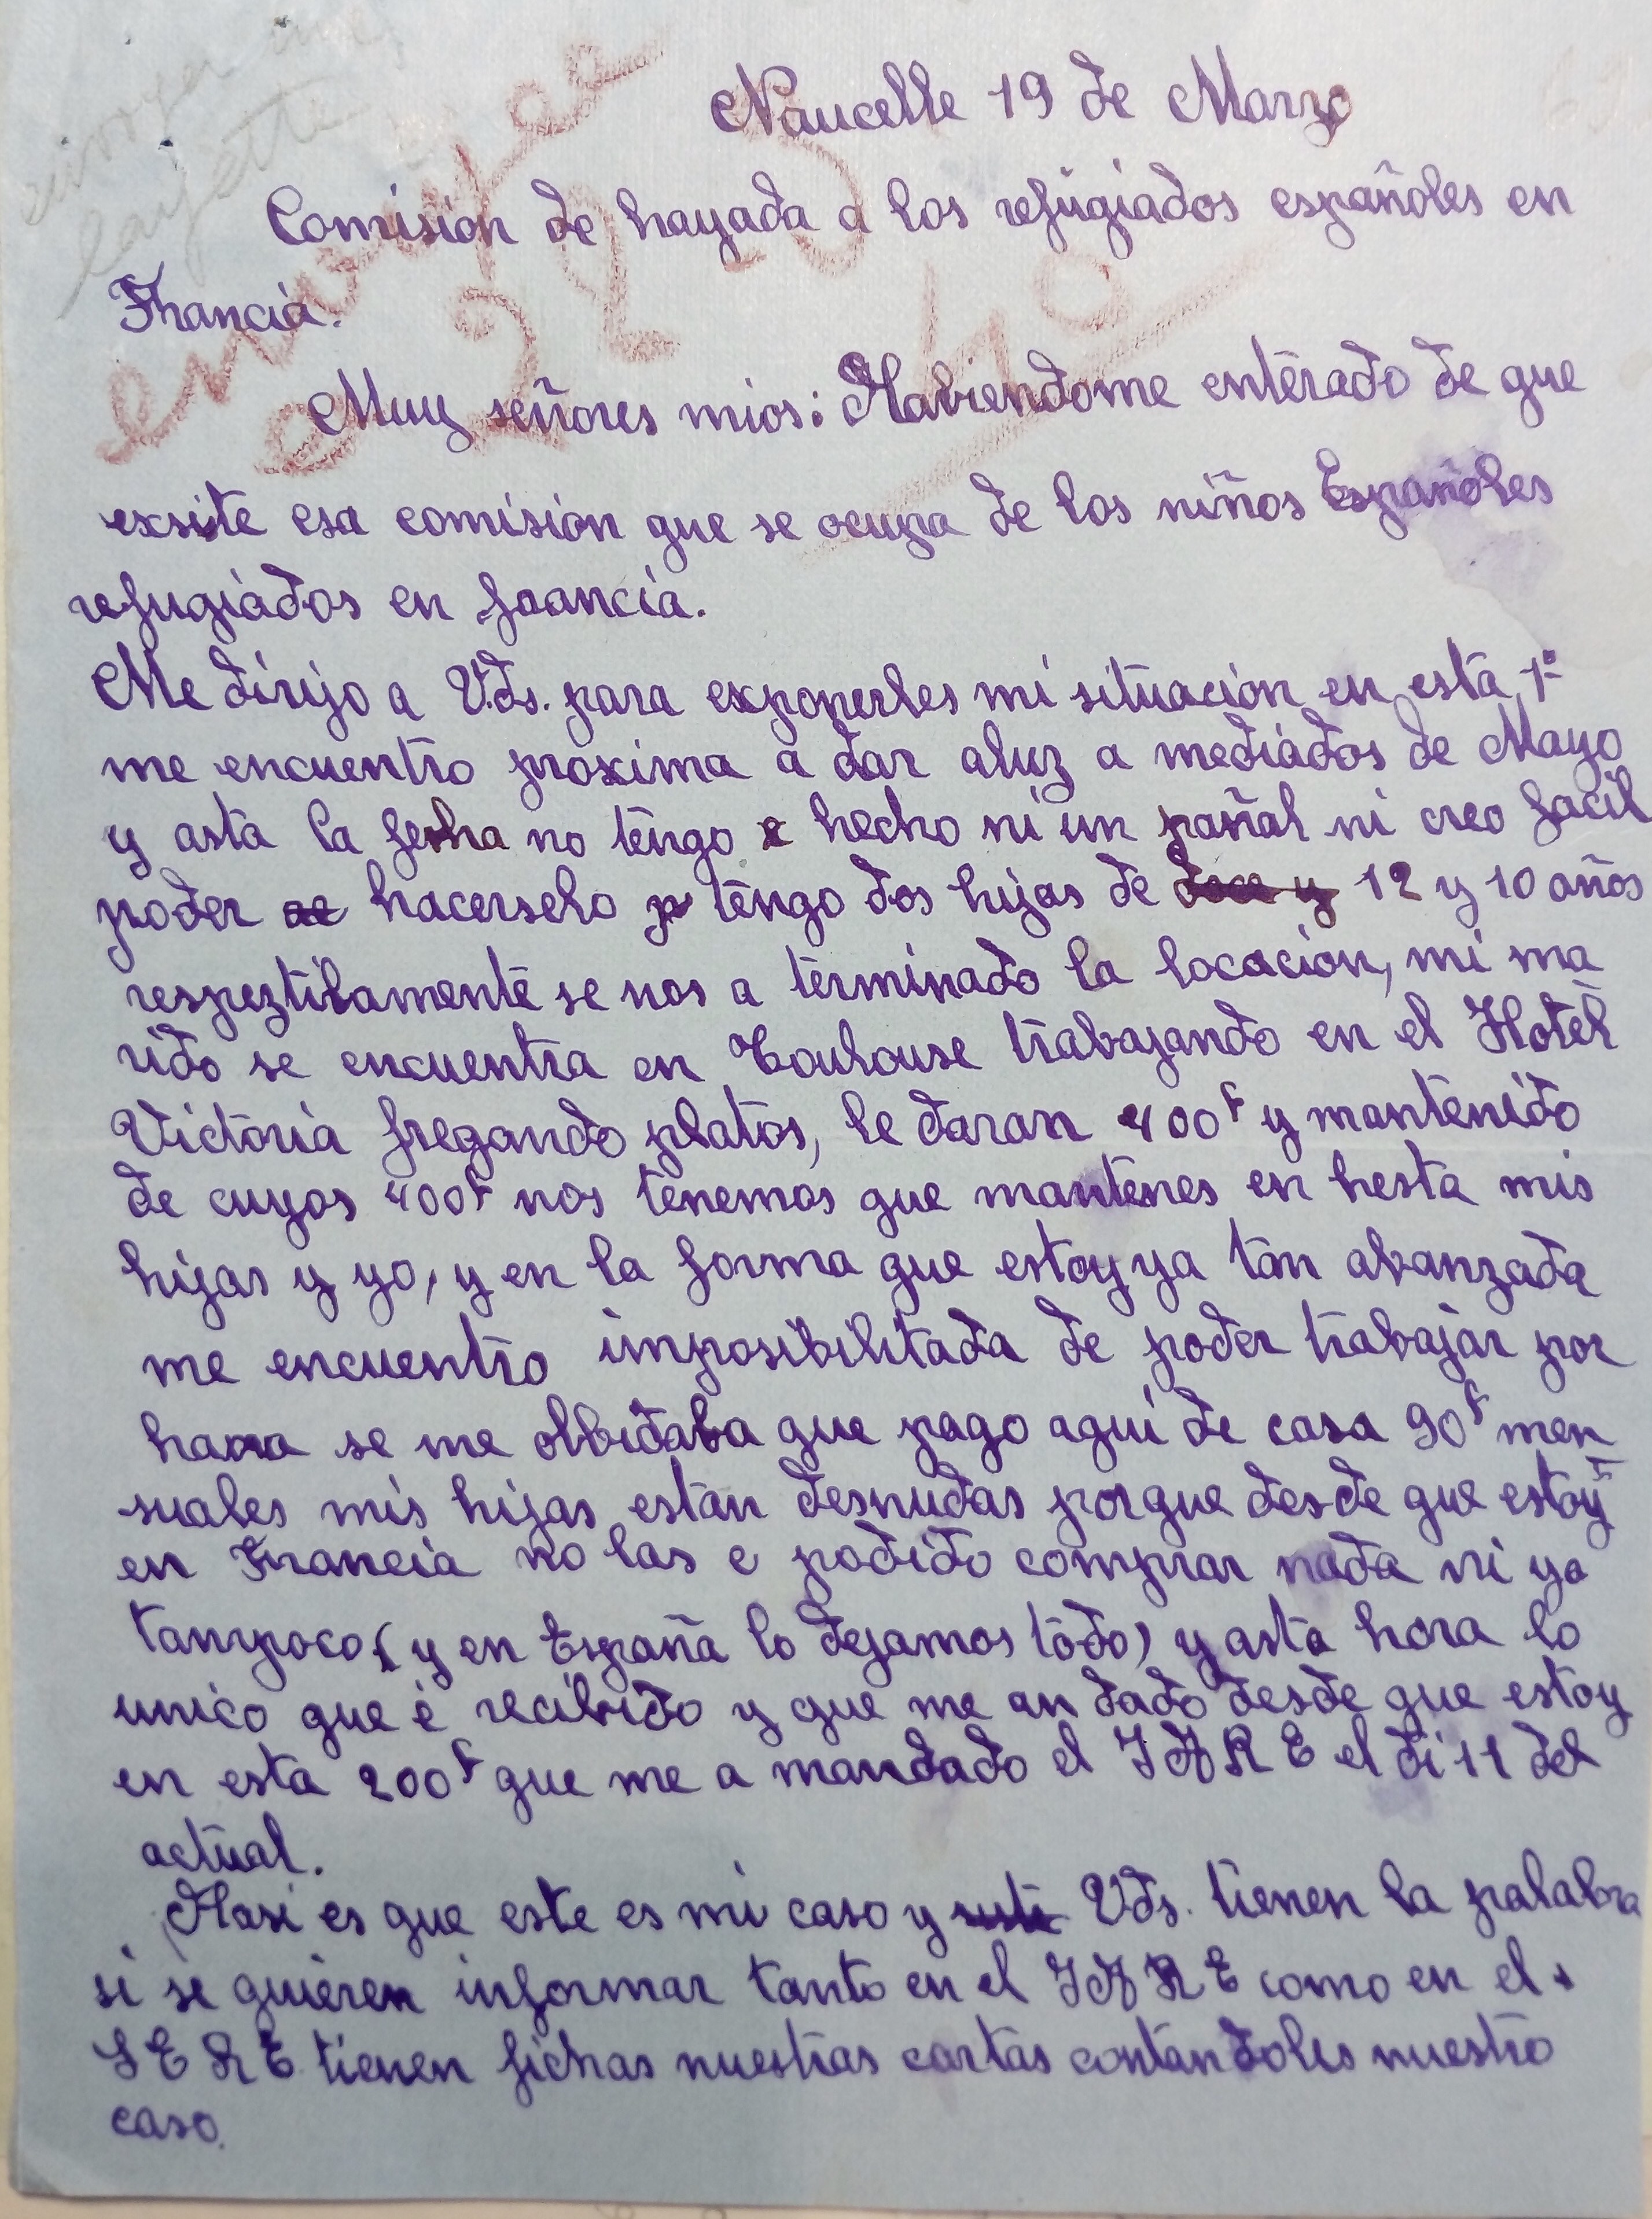 envoyer une
layette
envoyé
Naucelle 19 de Marzo
Comision de hayada a los refugiados españoles en
Francia.
Muy señores mios: Habiendome enterado de que
exsite esa comision que se ocupa de los niños Españoles
refugiados en francia.
Me dirijo a Vds. para exponerles mi situacion en esta, 1º
me encuentro proxima a dar aluz a mediados de Mayo
y asta la fecha no tengo hecho ni un pañal ni creo facil
poder hacerselo tengo dos hijas de 12 y 10 años
respeztibamente se nos a terminado la locacion, mi ma
rido se encuentra en Toulouse trabajando en el Hotel
Victoria fregando platos, le daran 400f y mantenido
de cuyos 400f nos tenemos que mantenes en hesta mis
hijas y yo, y en la forma que estoy ya tan abanzada
me encuentro imposibilitada de poder trabajar por
hara se me olbidaba que pago aqui de casa 90f men
suales mis hijas estan desnudas porque desde que estoy
en Francia no las e podido comprar nada ni yo
tampoco (y en España lo dejamos todo) y asta hora lo
unico que é recibido y que me an dado desde que estoy
en esta 200f que me a mandado el JARE el di 11 del
actual.
Hasi es que este es mi caso y Vds. tienen la palabra
si se quieren informar tanto en el JARE como en el
SERE tienen fichas nuestras cartas contandoles nuestro
caso.